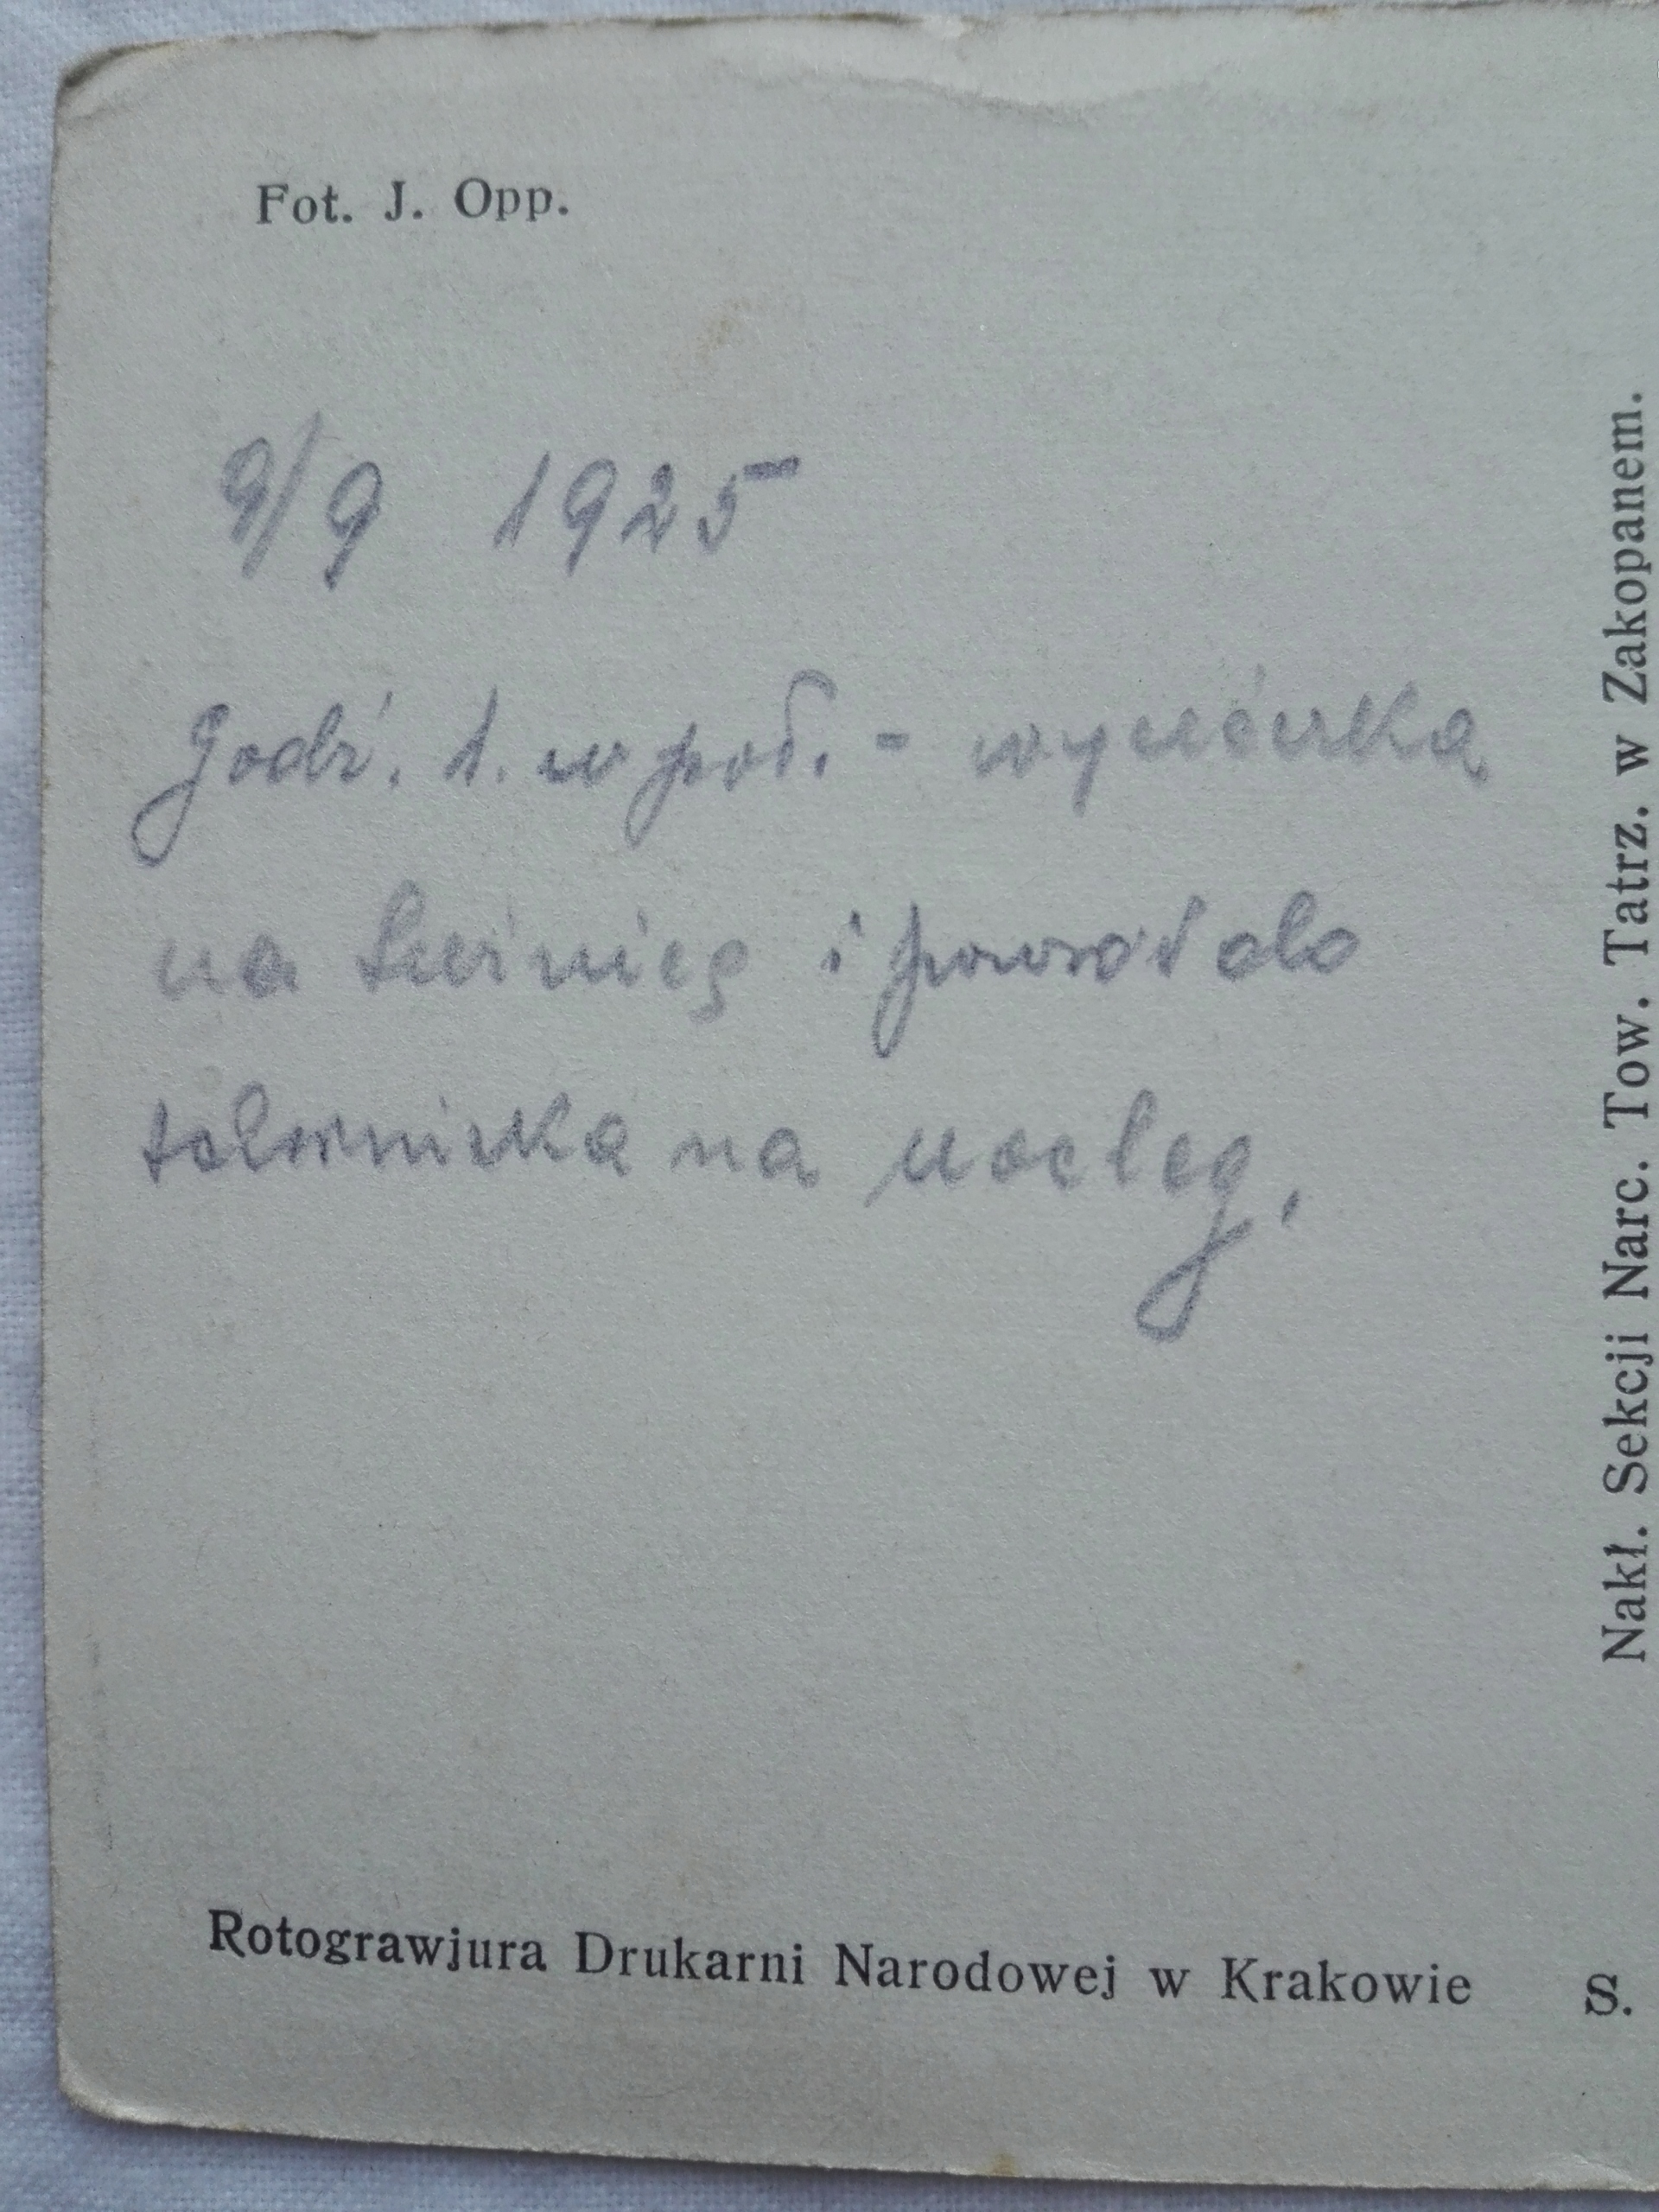 Fot. J. Opp.
9/9 1925
Godź. 1. w poł. - wycieczka
na i powrót do
schroniska na nocleg.
Rotograwjura Drukarni Narodowej w Krakowie
S.
Nakł. Sekcji Narc. Tow. Tatrz. w Zakopanem.